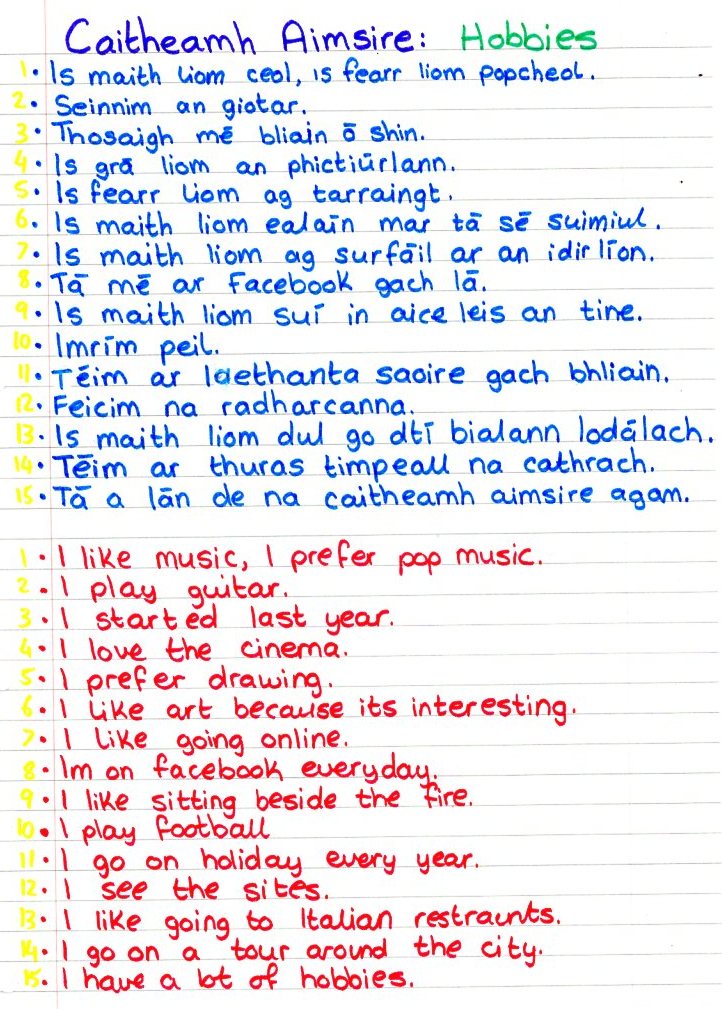 Caitheamh Aimsire: Hobbies
1. Is maith liom ceol, is fearr liom popcheol.
2. Seinnim an giotar.
3. Thosaigh mē bliain ō shin.
4. Is grā liom an phictiūrlann.
5. Is fearr liom ag tarraingt.
6. Is maith liom ealaīn mar tā sē suimiul.
7. Is maith liom ag surfāil ar an idirlīon.
8. Tā mē ar Facebook gach lā.
9. Is maith liom suī in aice leis an tine.
10. Imrīm peil.
11. Tēim ar laethanta saoire gach bhliain.
12. Feicim na radharcanna.
13. Is maith liom dul go dtī bialann Iodālach.
14. Tēim ar thuras timpeall na cathrach.
15. Tā a lān de na caitheamh aimsire agam.
1. I like music, I prefer pop music.
2. I play guitar.
3. I started last year.
4. I love the cinema.
5. I prefer drawing.
6. I like art because its interesting.
7. I like going online.
8. Im on facebook everyday.
9. I like sitting beside the fire.
10. I play football
11. I go on holiday every year.
12. I see the sites.
13. I like going to Italian restraunts.
14. I go on a tour around the city.
15. I have a lot of hobbies.